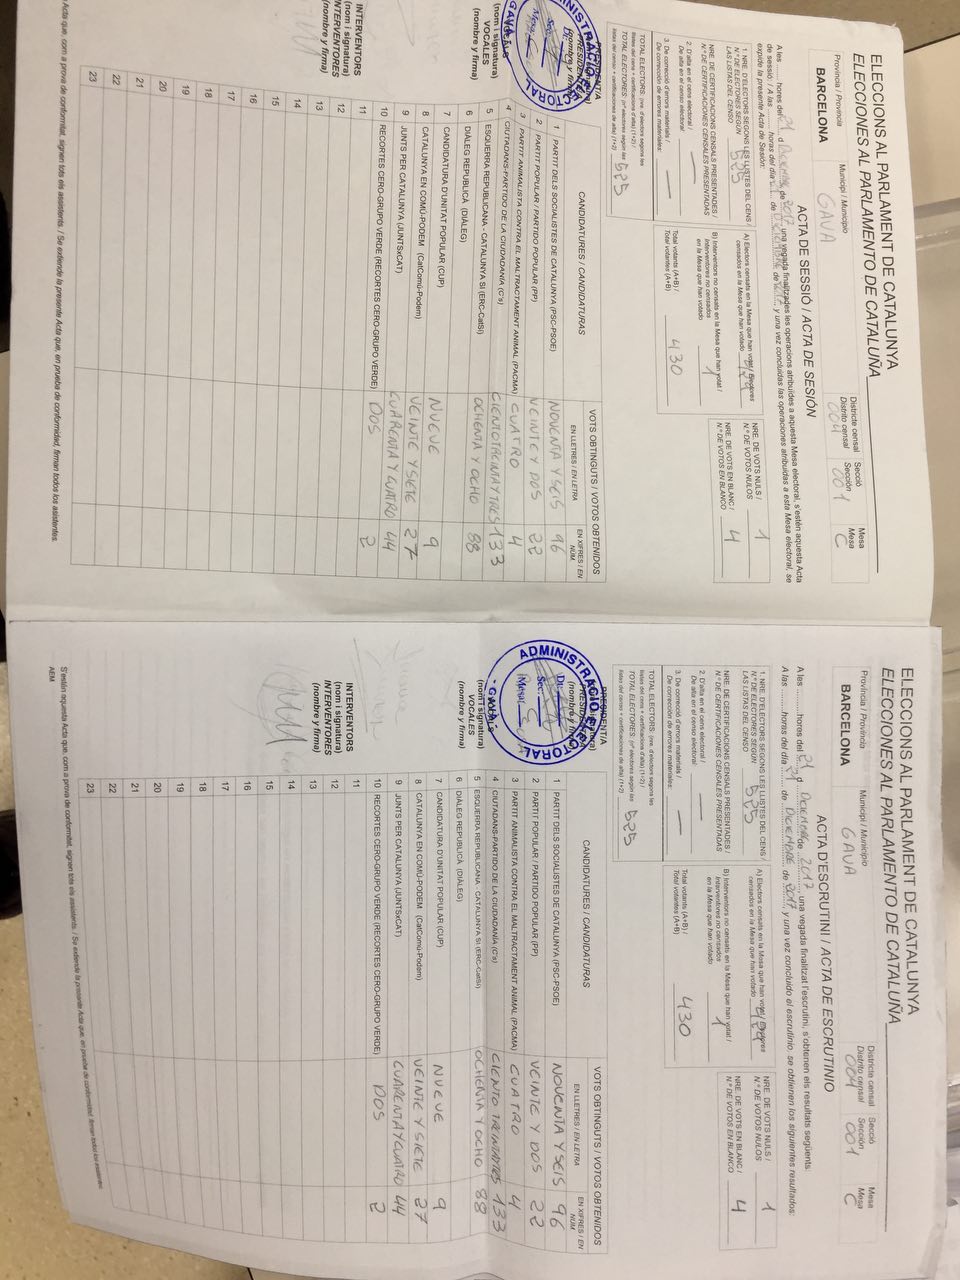 ELECCIONS AL PARLAMENT DE CATALUNYA
ELECCIONES AL PARLAMENTO DE CATALUÑA
Provincia / Provincia
BARCELONA
Municipi / Municipio
GAVA
Districte censal
Distrito censal
004
Secció
Sección
001
Mesa
Mesa
C
ACTA DE SESSIÓ / ACTA DE SESIÓN
una vegada finalitzades les operacions atribuïdes a aquesta Mesa electoral, s'estén aquesta Acta
y una vez concluidas las operaciones atribuidas a esta Mesa electoral, se
expide la presente Acta de Sesión:
1. NRE. D'ELECTORS SEGONS LES LLISTES DEL CENS /
N.º DE ELECTORES SEGÚN
LAS LISTAS DEL CENSO
525
NRE. DE CERTIFICACIONS CENSALS PRESENTADES /
N.º DE CERTIFICACIONES CENSALES PRESENTADAS
2. D'alta en el cens electoral /
De alta en el censo electoral:
3. De correcció d'errors materials /
De corrección de errores materiales:
TOTAL ELECTORS: (nre. d'electors segons les
llistes del cens + certificacions d'alta) (1+2) /
TOTAL ELECTORES: (nº electores según las
listas del censo + certificaciones de alta) (1+2)
525
A) Electors censats en la Mesa que han votat / Electores
censados en la Mesa que han votado
429
B) Interventors no censats en la Mesa que han votat /
Interventores no censados
en la Mesa que han votado
1
Total votants (A+B) /
Total votantes (A+B)
430
NRE. DE VOTS NULS /
N.º DE VOTOS NULOS
1
NRE. DE VOTS EN BLANC /
N.º DE VOTOS EN BLANCO
4
CANDIDATURES / CANDIDATURAS
VOTS OBTINGUTS / VOTOS OBTENIDOS
EN LLETRES / EN LETRA
EN XIFRES / EN NÚM.
1 PARTIT DELS SOCIALISTES DE CATALUNYA (PSC-PSOE) NOVENTA Y SEIS 96
2 PARTIT POPULAR / PARTIDO POPULAR (PP) VEINTE Y DOS 22
3 PARTIT ANIMALISTA CONTRA EL MALTRACTAMENT ANIMAL (PACMA) CUATRO 4
4 CIUTADANS-PARTIDO DE LA CIUDADANÍA (C's) CIENTO TREINTA Y TRES 133
5 ESQUERRA REPUBLICANA - CATALUNYA SÍ (ERC-CatSí) OCHENTA Y OCHO 88
6 DIÀLEG REPUBLICÀ (DIÀLEG)
7 CANDIDATURA D'UNITAT POPULAR (CUP) NUEVE 9
8 CATALUNYA EN COMÚ-PODEM (CatComú-Podem) VEINTE Y SIETE 27
9 JUNTS PER CATALUNYA (JUNTSxCAT) CUARENTA Y CUATRO 44
10 RECORTES CERO-GRUPO VERDE (RECORTES CERO-GRUPO VERDE) DOS 2
11
12
13
14
15
16
17
18
19
20
21
22
23
(nom i signatura)
VOCALES
(nombre y firma)
INTERVENTORS
(nom i signatura)
INTERVENTORES
(nombre y firma)
Acta que, com a prova de conformitat, signen tots els assistents. / Se extiende la presente Acta que, en prueba de conformidad, firman todos los asistentes.
ELECCIONS AL PARLAMENT DE CATALUNYA
ELECCIONES AL PARLAMENTO DE CATALUÑA
Provincia / Provincia
BARCELONA
Municipi / Municipio
GAVA
Districte censal
Distrito censal
004
Secció
Sección
001
Mesa
Mesa
C
ACTA D'ESCRUTINI / ACTA DE ESCRUTINIO
A les hores del 21 d DICIEMBRE de 2017, una vegada finalitzat l'escrutini, s'obtenen els resultats següents:
A las horas del día 21 de DICIEMBRE de 2017, y una vez concluido el escrutinio, se obtienen los siguientes resultados:
1. NRE. D'ELECTORS SEGONS LES LLISTES DEL CENS /
N.º DE ELECTORES SEGÚN
LAS LISTAS DEL CENSO
525
NRE. DE CERTIFICACIONS CENSALS PRESENTADES /
N.º DE CERTIFICACIONES CENSALES PRESENTADAS
2. D'alta en el cens electoral /
De alta en el censo electoral:
3. De correcció d'errors materials /
De corrección de errores materiales:
TOTAL ELECTORS: (nre. d'electors segons les
llistes del cens + certificacions d'alta) (1+2) /
TOTAL ELECTORES: (nº electores según las
listas del censo + certificaciones de alta) (1+2)
525
A) Electors censats en la Mesa que han votat / Electores
censados en la Mesa que han votado
429
B) Interventors no censats en la Mesa que han votat /
Interventores no censados
en la Mesa que han votado
1
Total votants (A+B) /
Total votantes (A+B)
430
NRE. DE VOTS NULS /
N.º DE VOTOS NULOS
1
NRE. DE VOTS EN BLANC /
N.º DE VOTOS EN BLANCO
4
CANDIDATURES / CANDIDATURAS
VOTS OBTINGUTS / VOTOS OBTENIDOS
EN LLETRES / EN LETRA
EN XIFRES / EN NÚM.
1 PARTIT DELS SOCIALISTES DE CATALUNYA (PSC-PSOE) NOVENTA Y SEIS 96
2 PARTIT POPULAR / PARTIDO POPULAR (PP) VEINTE Y DOS 22
3 PARTIT ANIMALISTA CONTRA EL MALTRACTAMENT ANIMAL (PACMA) CUATRO 4
4 CIUTADANS-PARTIDO DE LA CIUDADANÍA (C's) CIENTO TREINTA TRES 133
5 ESQUERRA REPUBLICANA - CATALUNYA SÍ (ERC-CatSí) OCHENTA Y OCHO 88
6 DIÀLEG REPUBLICÀ (DIÀLEG)
7 CANDIDATURA D'UNITAT POPULAR (CUP) NUEVE 9
8 CATALUNYA EN COMÚ-PODEM (CatComú-Podem) VEINTE Y SIETE 27
9 JUNTS PER CATALUNYA (JUNTSxCAT) CUARENTA Y CUATRO 44
10 RECORTES CERO-GRUPO VERDE (RECORTES CERO-GRUPO VERDE) DOS 2
11
12
13
14
15
16
17
18
19
20
21
22
23
ADMINISTRACIÓ ELECTORAL
GAVÀ
(nom i signatura)
VOCALES
(nombre y firma)
INTERVENTORS
(nom i signatura)
INTERVENTORES
(nombre y firma)
S'estén aquesta Acta que, com a prova de conformitat, signen tots els assistents. / Se extiende la presente Acta que, en prueba de conformidad, firman todos los asistentes.
AEM